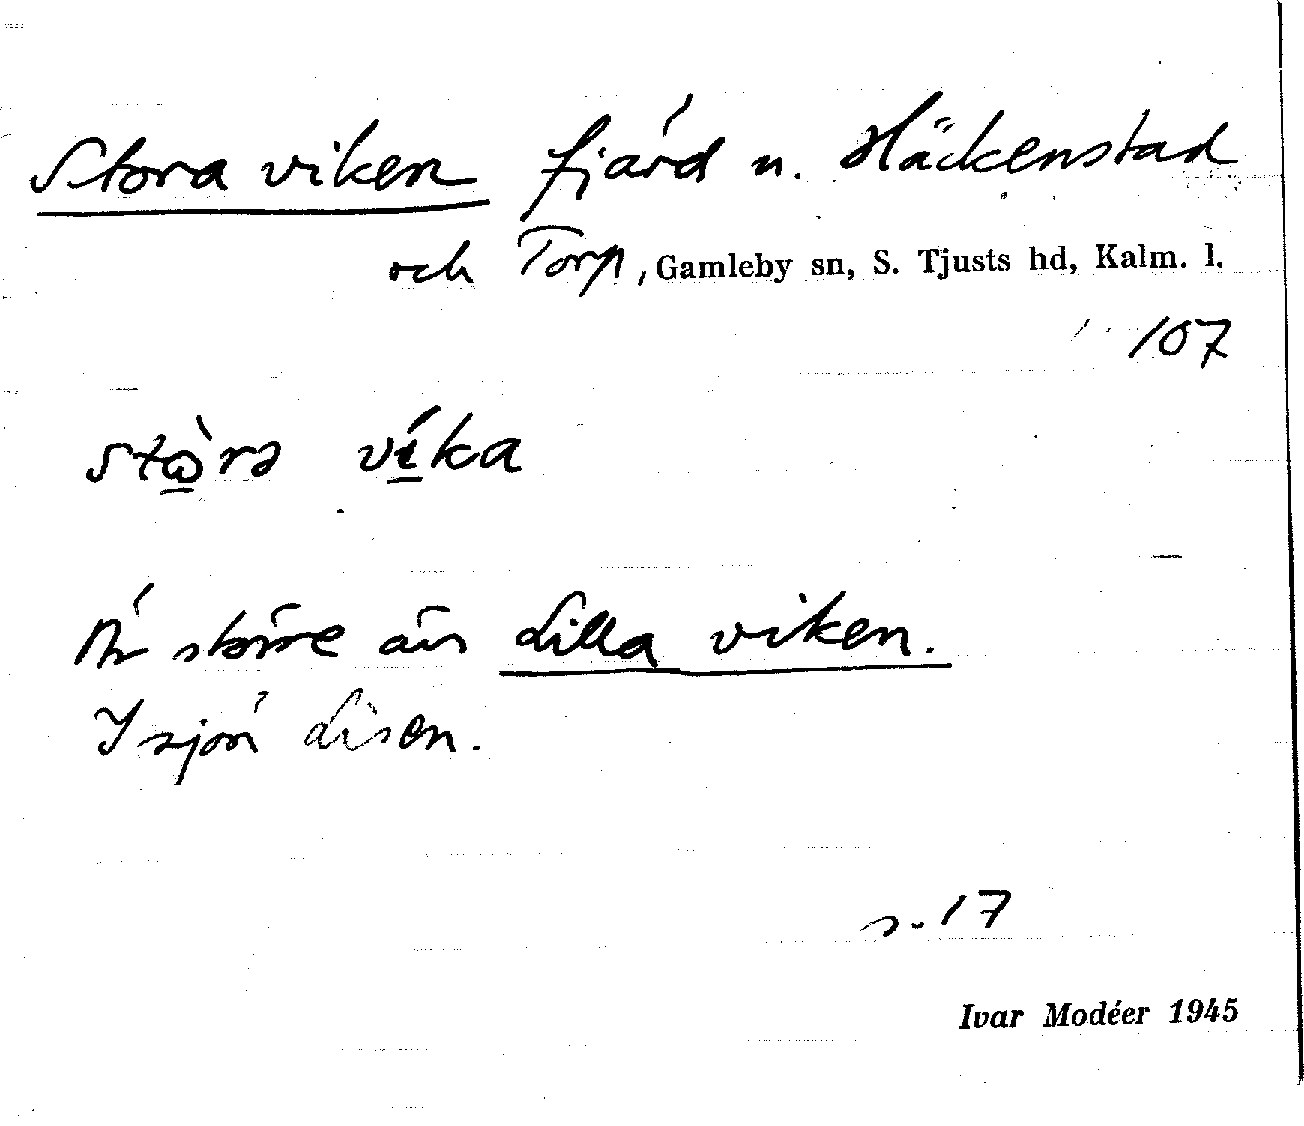 Stora viken fjärd n. Häckenstad
och Torp, Gamleby sn, S. Tjusts hd, Kalm. l.
107
stὼ̲rə ví̲ka
Är större än Lilla viken.
I sjön Lisen.
s. 17
Ivar Modéer 1945